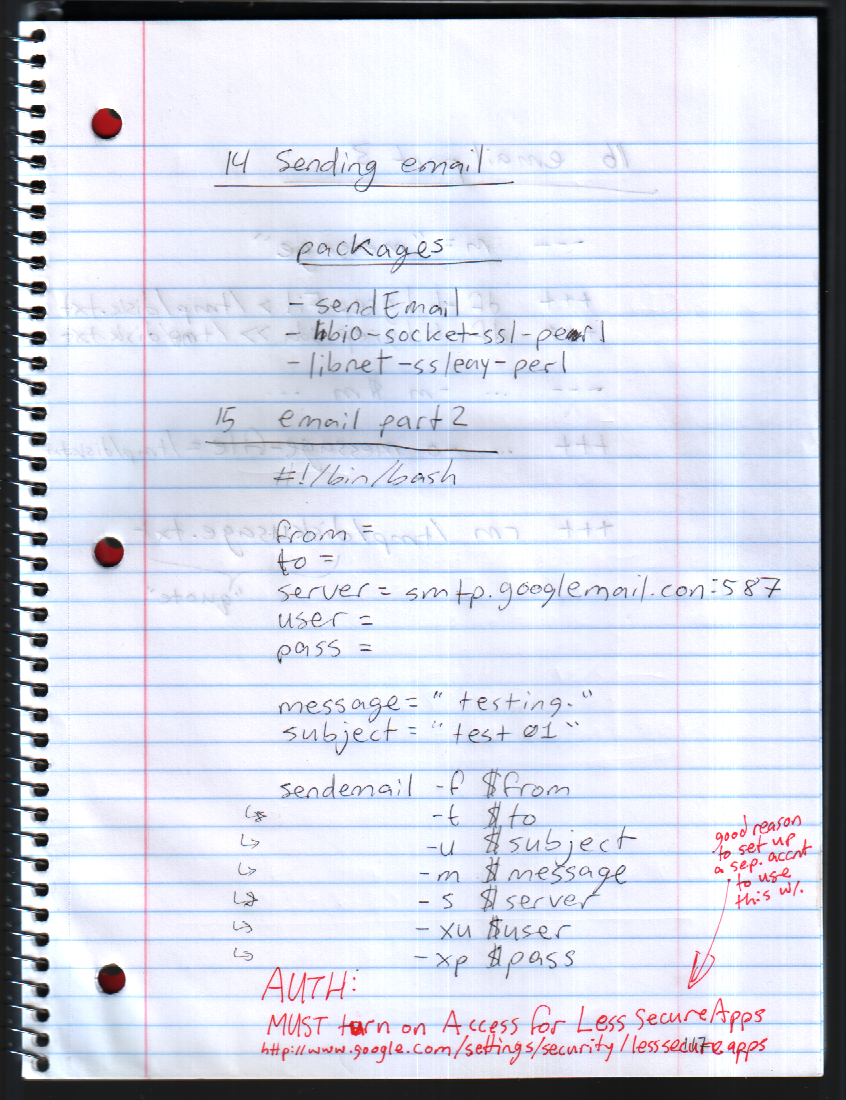 14 Sending email
packages
- sendEmail
- libio-socket-ssl-perl
- libnet-ssleay-perl
15 email part 2
#!/bin/bash
from =
to =
server = smtp.googlemail.con:587
user =
pass =
message = "testing."
subject = "test 01"
sendemail -f $from
↳ -t $to
↳ -u $subject
↳ -m $message
↳ -s $server
↳ -xu $user
↳ -xp $pass
good reason
to set up
a sep. accnt
to use
this w/.
AUTH:
MUST turn on Access for Less Secure Apps
http://www.google.com/settings/security/lesssecureapps